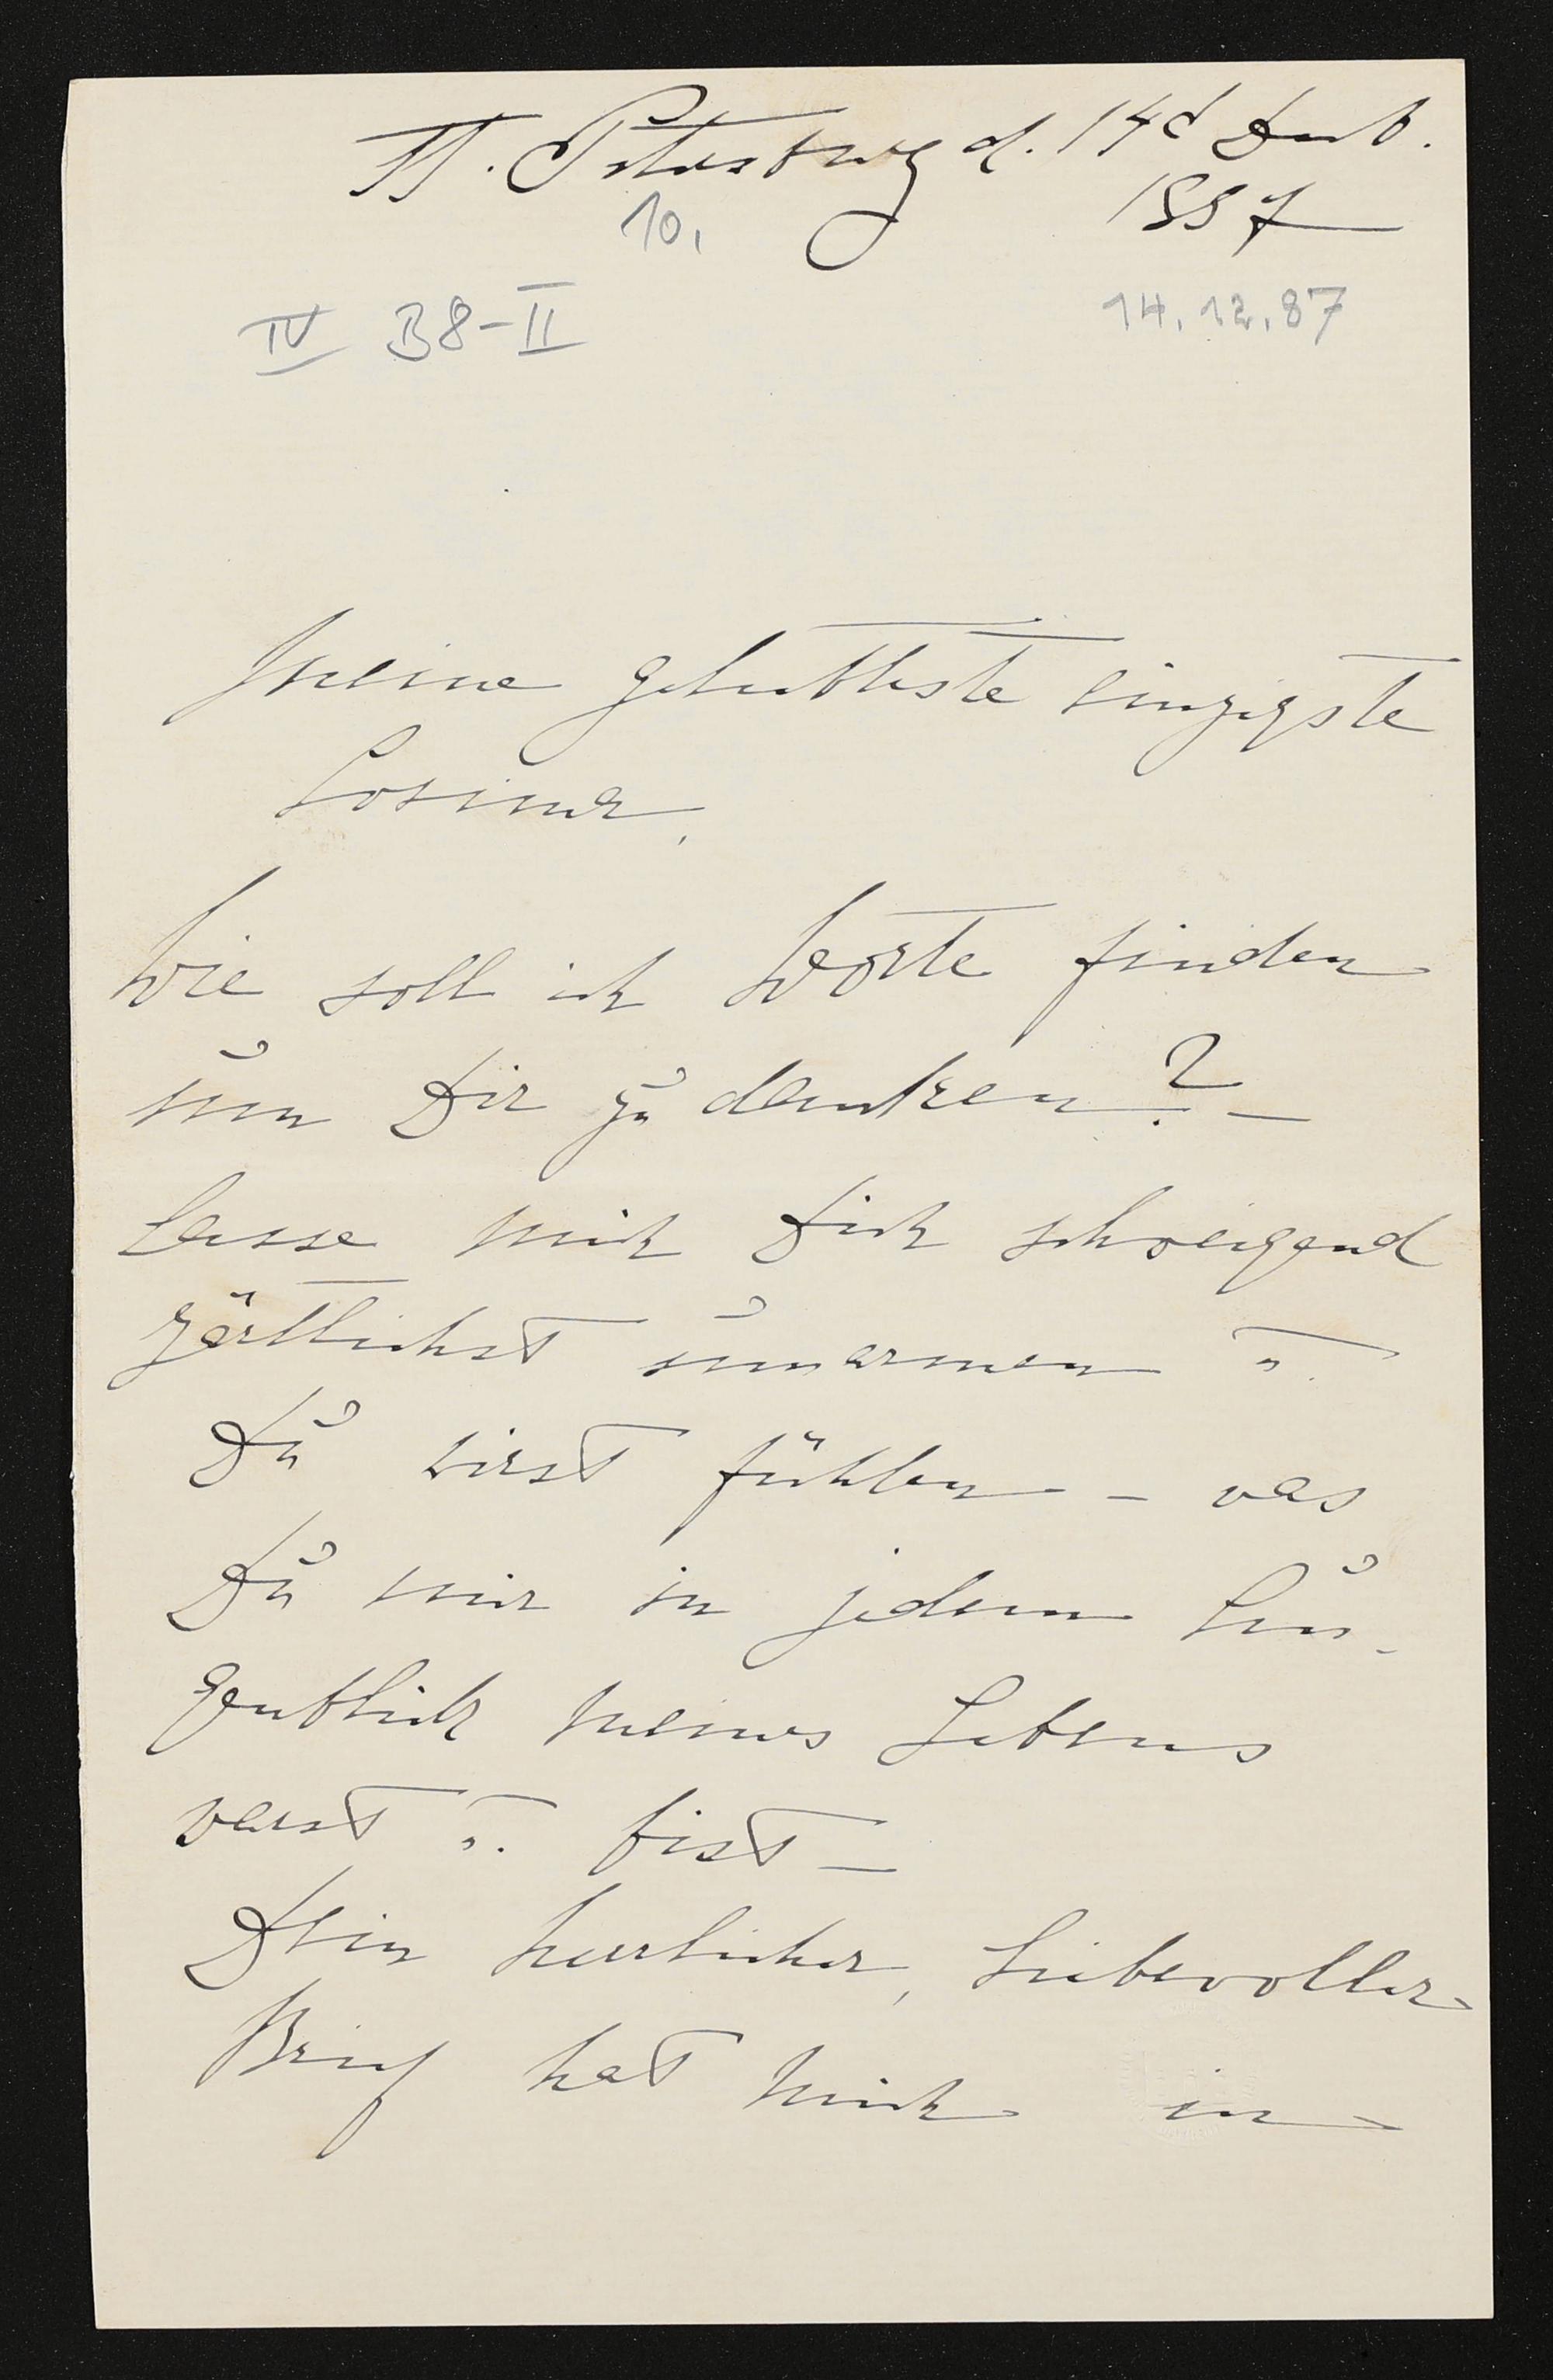 St. Petersburg d. 14d Deub.
1887
10.
IV B8-II
14.12.87
Meine geliebteste einzigste
Cosima,
Wie soll ich Worte finden
um Dir zu danken? –
Lasse mich Dich schweigend
zärtlichst umarmen u.
Du wirst fühlen – was
Du mir in jedem Au-
genblick meines Lebens
warst u. bist –
Dein herrlicher, liebevoller
Brief hat mich in